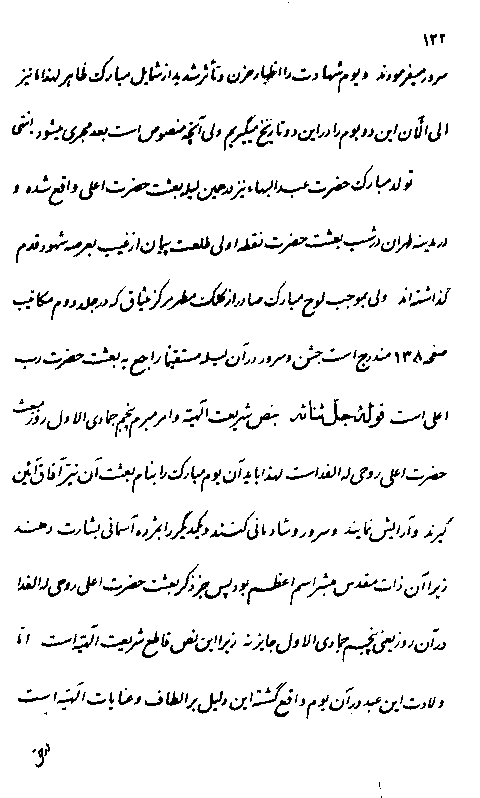 ۱۳۲
سرور میفرمودند و یوم شهادت را اظهار حزن و تأثر شدید از شمایل مبارک ظاهر لهذا ما نیز
الی الآن این دو یوم را در این دو تاریخ میگیریم ولی آنچه منصوص است بعد مجری میشود انتهی
تولد مبارک حضرت عبدالبهاء نیز در حین لیله بعثت حضرت اعلی واقع شده و
در مدینه طهران در شب بعثت حضرت نقطه اولی طلعت پیمان از غیب بعرصه شهود قدم
گذاشته‌اند ولی بموجب لوح مبارک صادر از کلک مطهر مرکز میثاق که در جلد دوم مکاتیب
صفحه ۱۳۸ مندرج است جشن و سرور در آن لیله مستقیماً راجع به بعثت حضرت رب
اعلی است قوله جل ثنائه بنص شریعت الهیه و امر مبرم پنجم جمادی الاول روز مبعث
حضرت اعلی روحی له الفداست لهذا باید آن یوم مبارک را بنام بعثت آن نیر آفاق آئین
گیرند و آرایش نمایند و سرور و شادمانی کنند و یکدیگر را بمژده آسمانی بشارت دهند
زیرا آن ذات مقدس مبشر اسم اعظم بود پس جز ذکر بعثت حضرت اعلی روحی له الفدا
در آن روز یعنی پنجم جمادی الاول جایز نه زیرا این نص قاطع شریعت الهیه است امّا
ولادت این عبد در آن یوم واقع گشته این دلیل بر الطاف و عنایات الهیه است